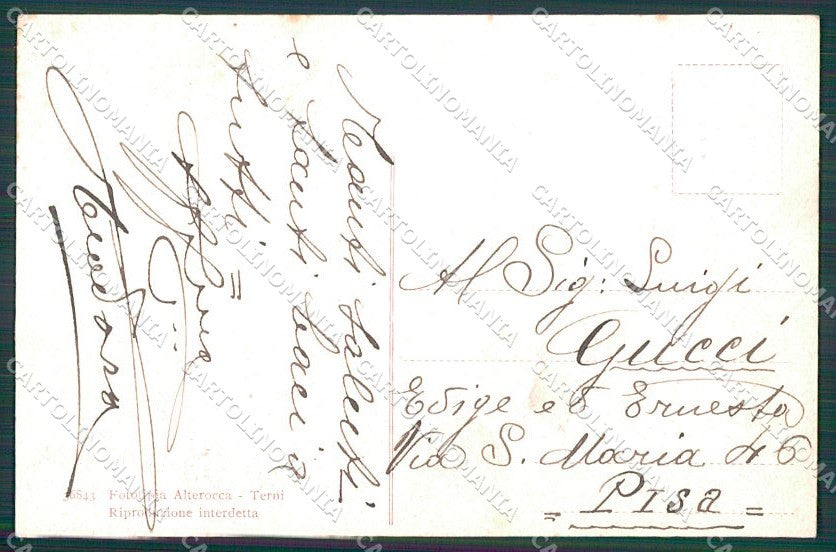 Tanti saluti
e tanti baci a
tutti =
Teodora
Al Sig: Luigi
Gucci
Edige ed Ernesta
Via S. Maria 46
= Pisa =
36843 Fototipia Alterocca - Terni
Riproduzione interdetta
CARTOLINOMANIA